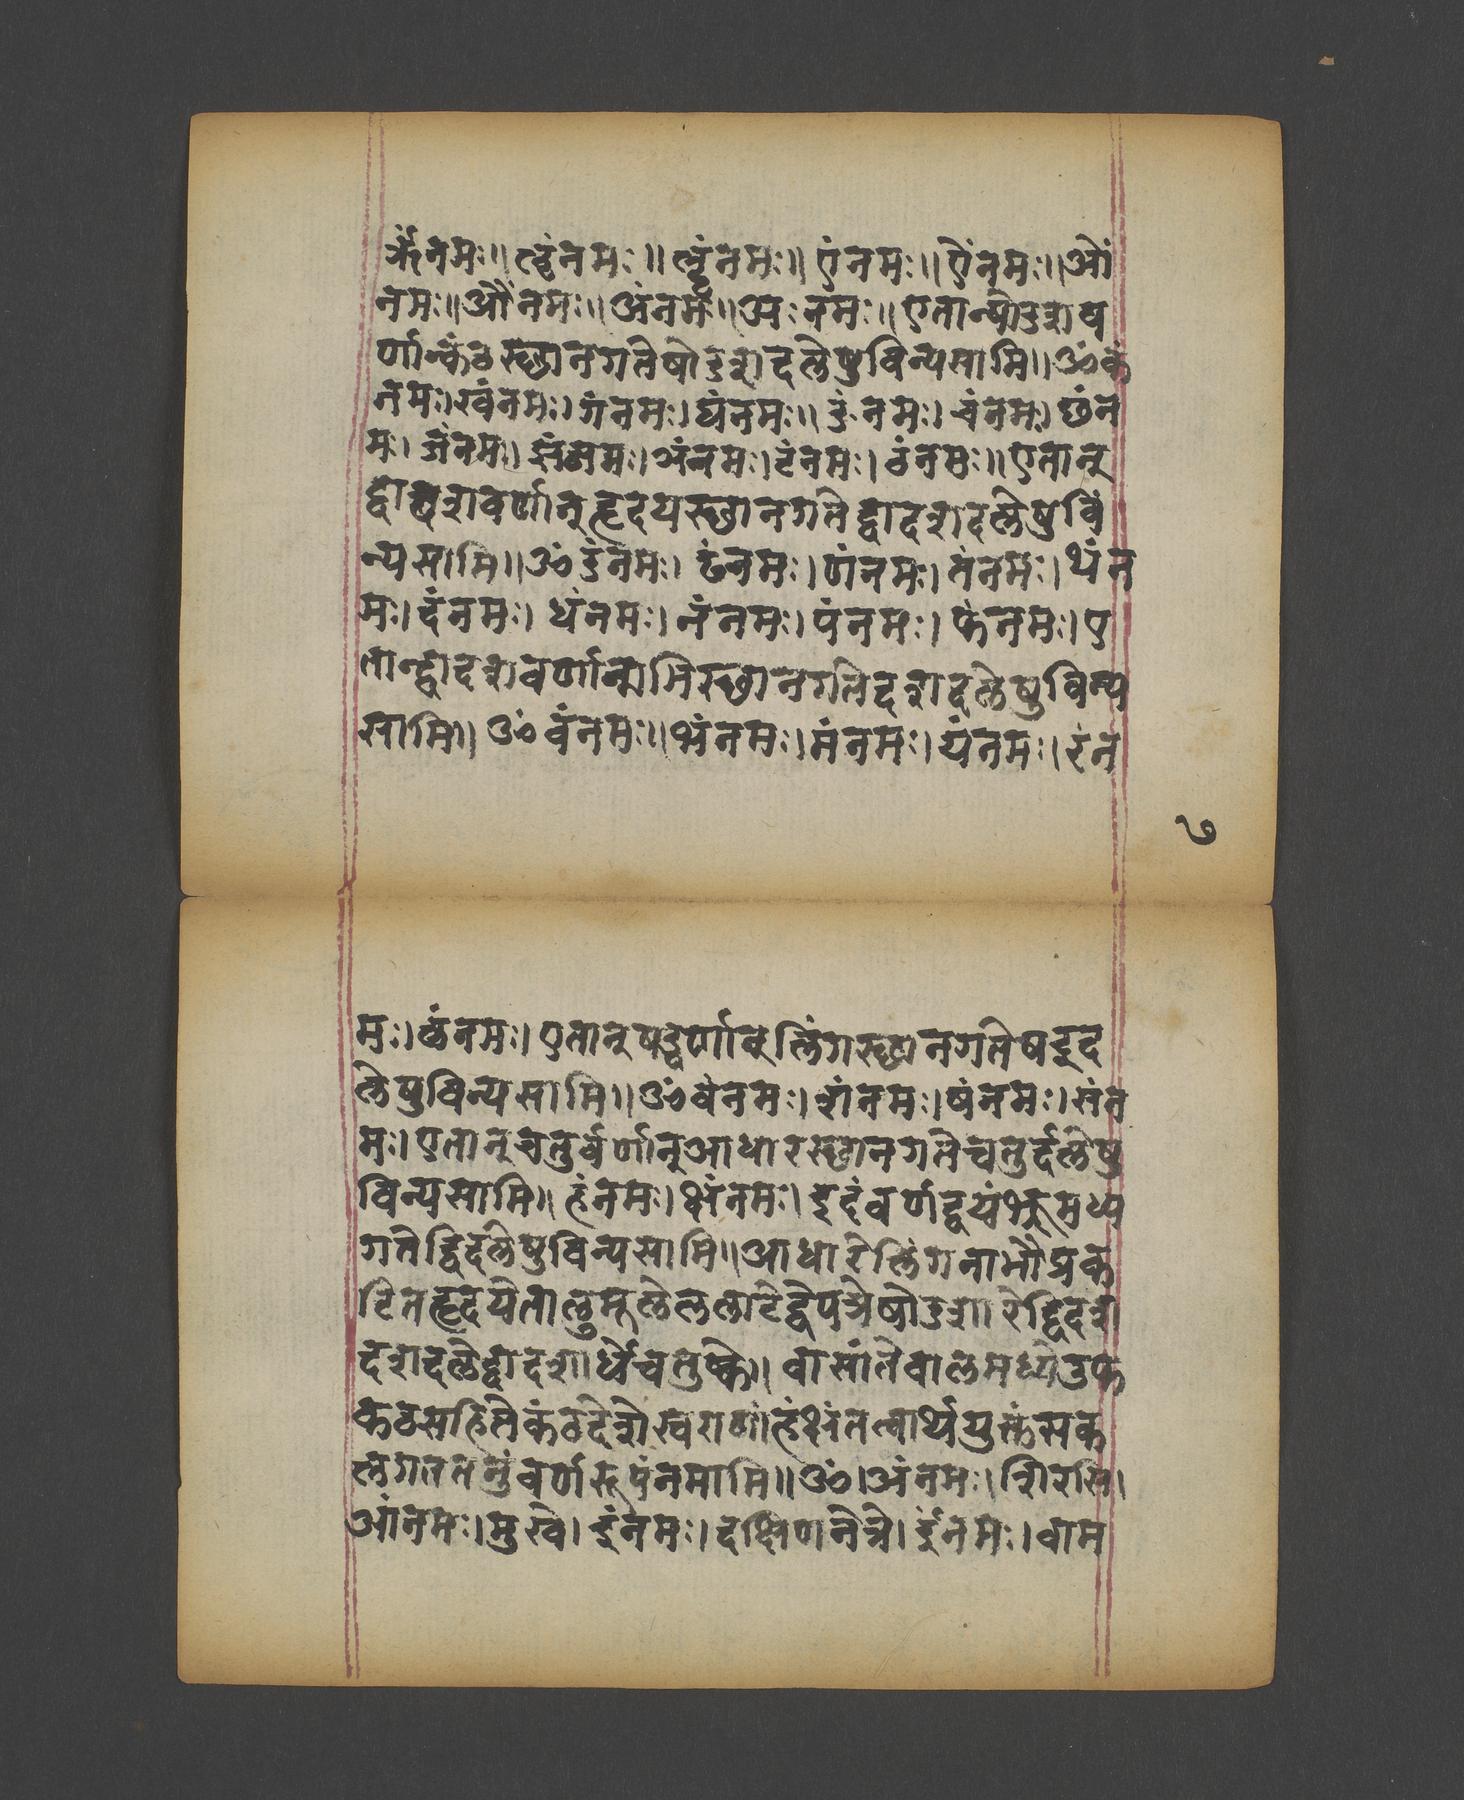 ॠंनमः॥ ऌंनमः॥ ॡंनमः॥ एंनमः॥ ऐंनमः॥ ओं
नमः॥ औंनमः॥ अंनमः॥ अःनमः॥ एतान्षोडशव
र्णान्कंठस्छानगतेषोडशदलेषुविन्यसामि॥ ॐकं
नमः। खंनमः। गंनमः। घंनमः॥ ङंनमः। चंनमः। छंन
मः। जंनमः। झंनमः। ञंनमः। टंनमः। ठंनमः॥ एतान्
द्वादशवर्णान्हृदयस्छानगतेद्वादशदलेषुवि
न्यसामि॥ ॐडंनमः। ढंनमः। णंनमः। तंनमः। थंन
मः। दंनमः। धंनमः। नंनमः। पंनमः। फंनमः। ए
तान्द्वादशवर्णान्नाभिस्छानगतेदशदलेषुविन्य
सामि॥ ॐ बंनमः॥ भंनमः। मंनमः। यंनमः। रंन
७
मः। लंनमः। एतान्षड्वर्णान्लिंगस्छानगतेषड्द
लेषुविन्यसामि॥ ॐवंनमः। शंनमः। षंनमः। संन
मः। एतान्चतुर्वर्णान्आधारस्छानगतेचतुर्दलेषु
विन्यसामि॥ हंनमः। क्षंनमः। इदंवर्णद्वयंभ्रूमध्य
गतेद्विदलेषुविन्यसामि॥ आधारेलिंगनाभौप्रक
टितहृदयेतालुमूलेललाटेद्वेपत्रेषोडशारेद्विदश
दशदलेद्वादशार्धेचतुष्के॥ वासांतेबालमध्येडफ
कठसहितेकंठदेशेस्वराणांहंक्षंतत्वार्थयुक्तंसक
लगततनुंवर्णरूपंनमामि॥ ॐ। अंनमः। शिरसि।
आंनमः। मुखे। इंनमः। दक्षिणनेत्रे। ईंनमः। वाम